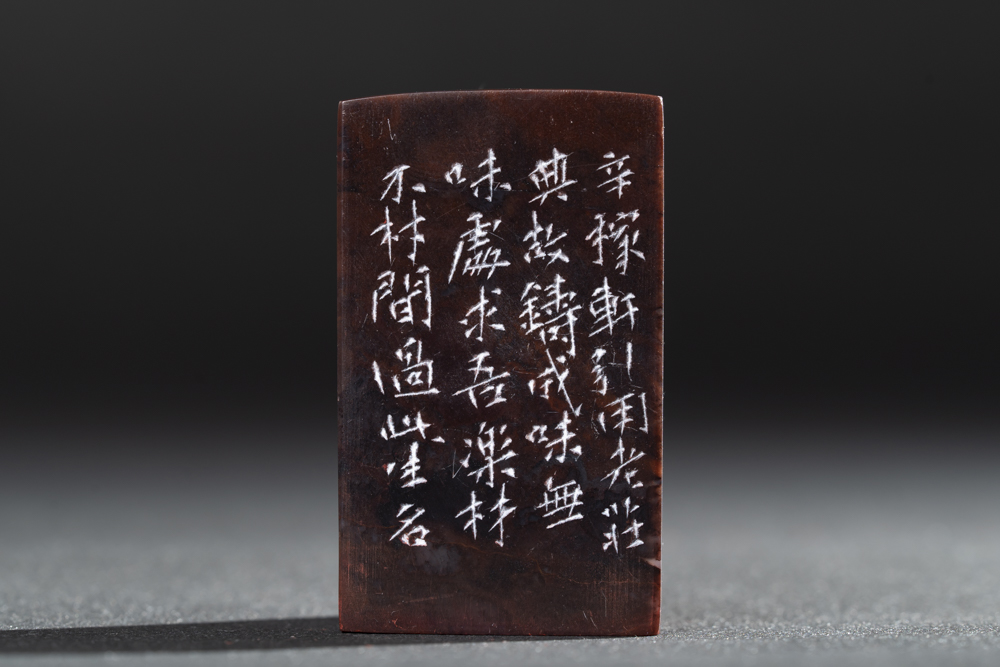 辛稼軒引用老莊
典故鑄成味無
味處求吾楽材
不材間過此生名